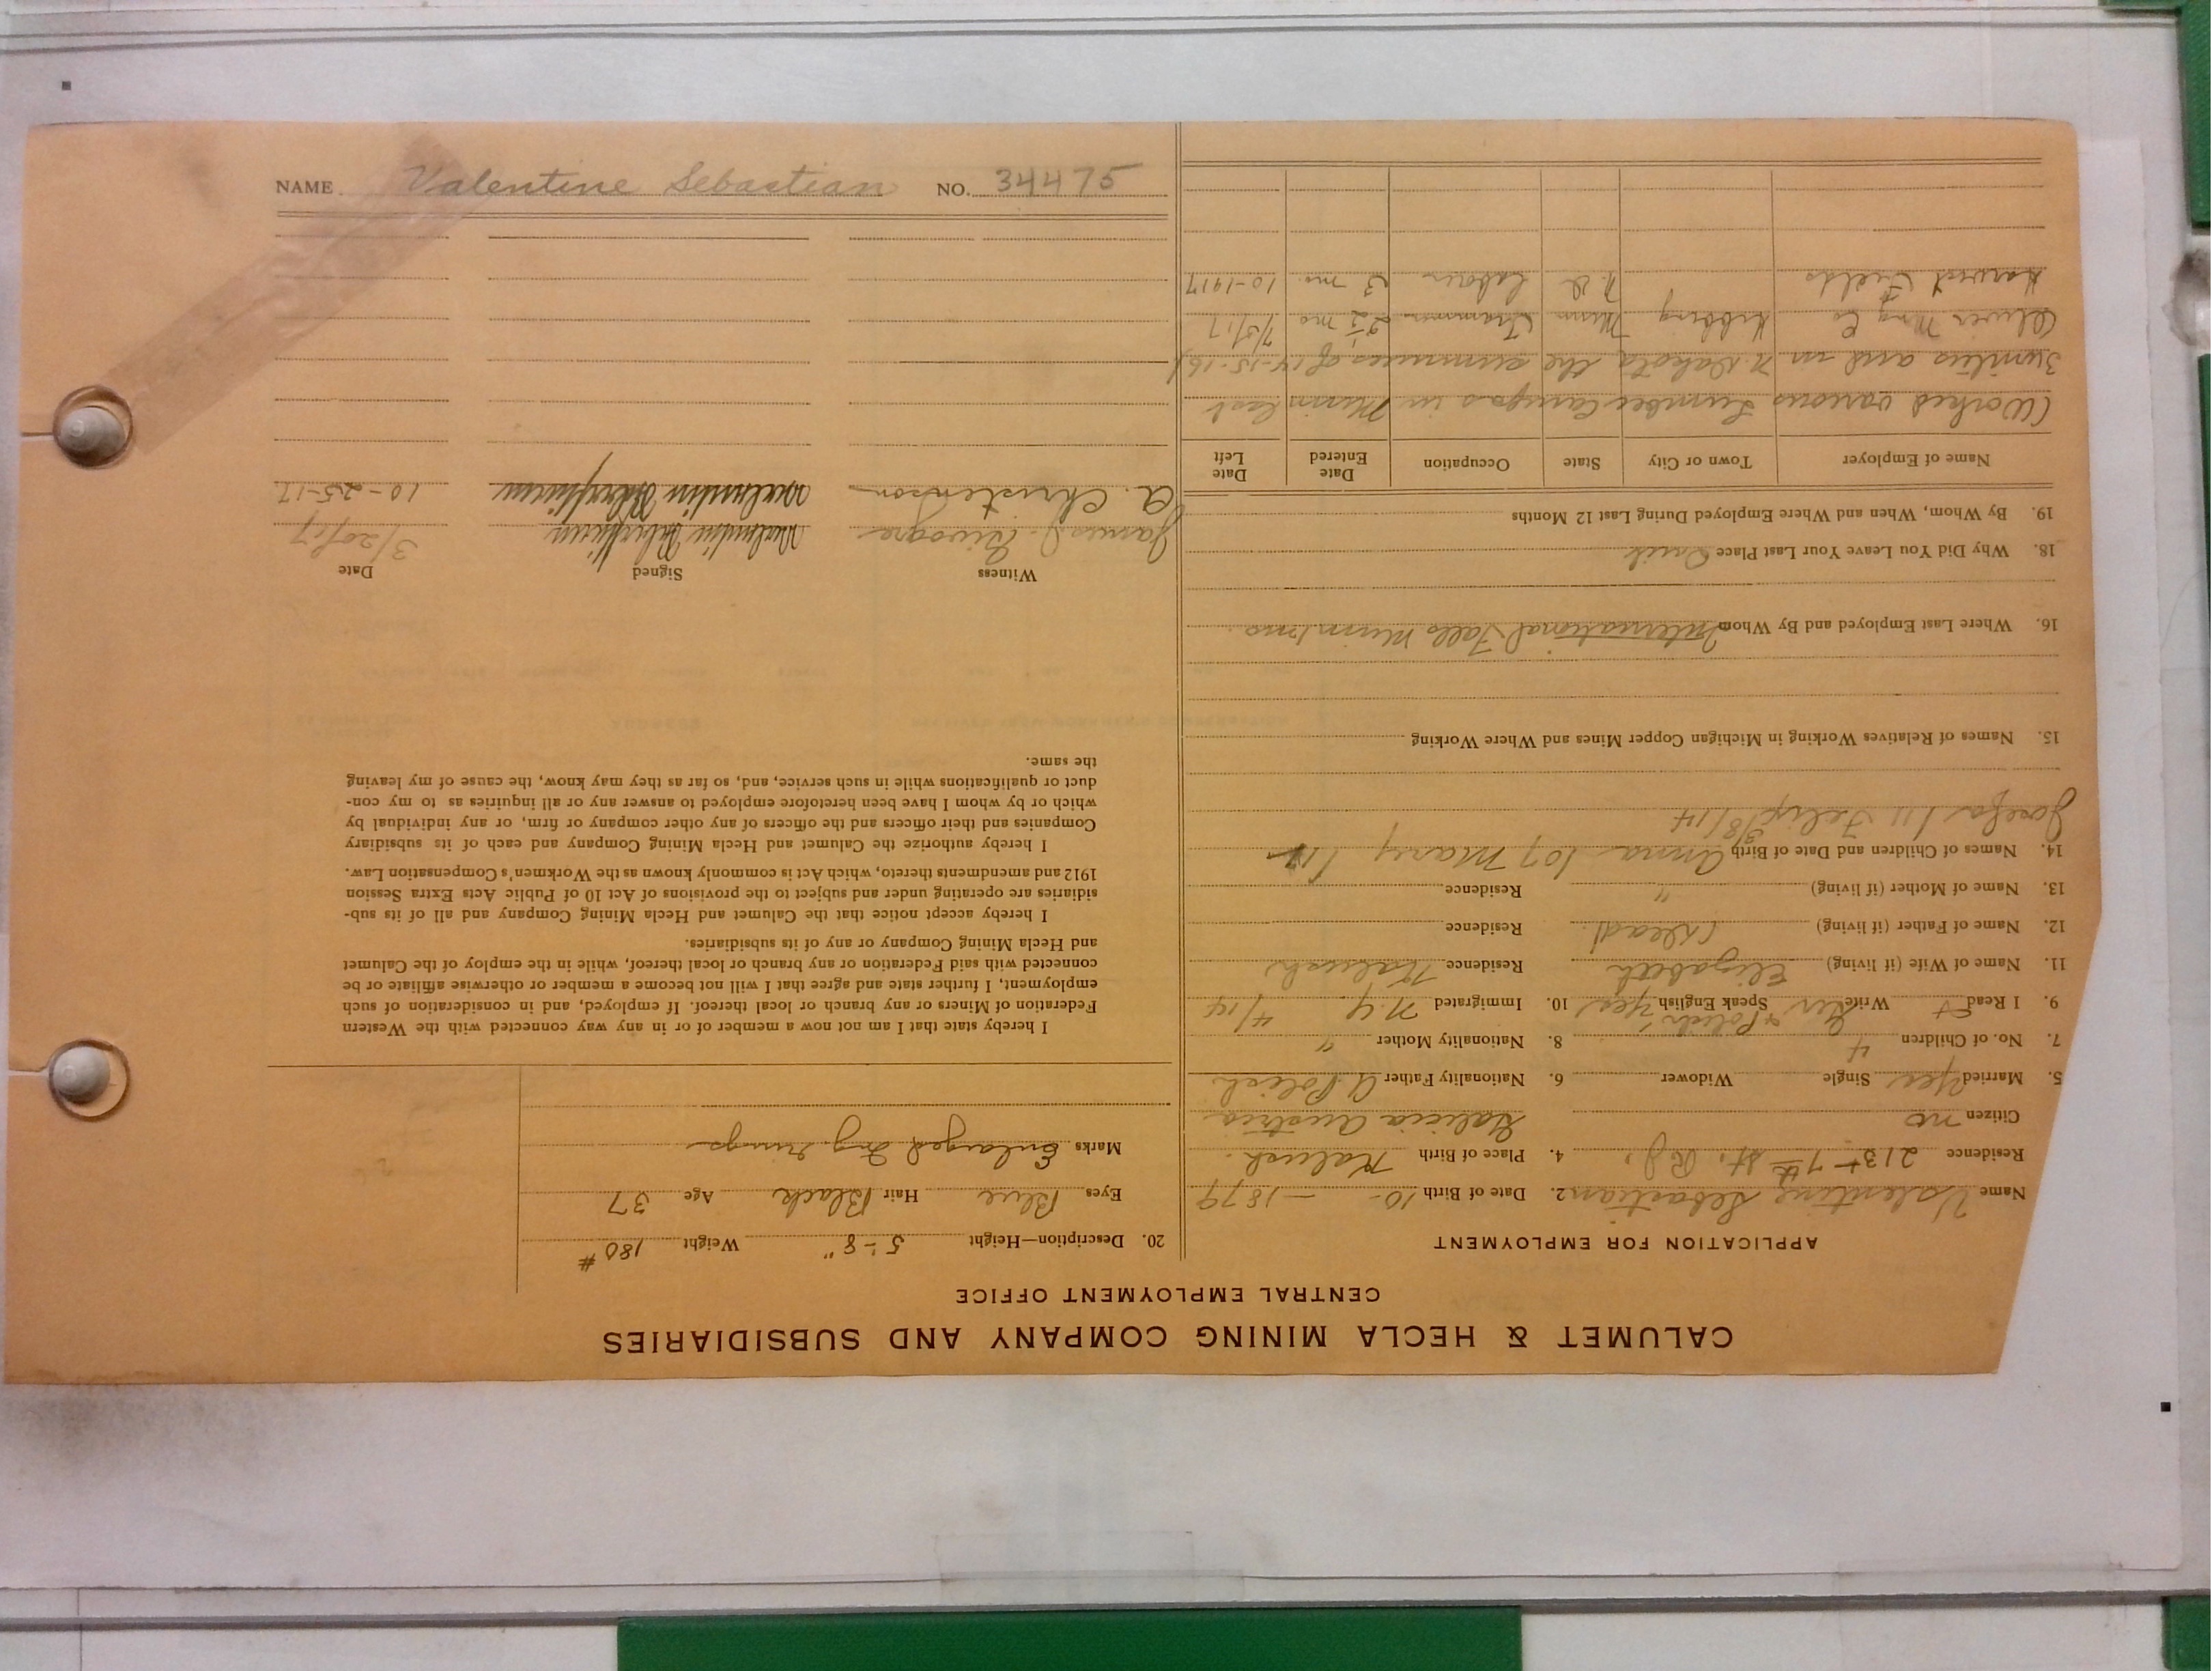 NAME Valentine Sebastian NO. 34475
CALUMET & HECLA MINING COMPANY AND SUBSIDIARIES
CENTRAL EMPLOYMENT OFFICE
APPLICATION FOR EMPLOYMENT
Name Valentine Sebastian 2. Date of Birth 10 - 1879
Residence 213 - 7th St. R.J. 4. Place of Birth Kalush.
Citizen no Galicia Austria
5. Married Yes Single Widower 6. Nationality Father A Polish
7. No. of Children 4 8. Nationality Mother "
9. I Read + Write Ger + Polish Speak English Yes 10. Immigrated N.Y. 4/14
11. Name of Wife (if living) Elizabeth Residence Kalush
12. Name of Father (if living) (Dead) Residence
13. Name of Mother (if living) " Residence
14. Names of Children and Date of Birth Anna 107 Mary 1
Josefa 111 Felix 3/8/14
15. Names of Relatives Working in Michigan Copper Mines and Where Working
16. Where Last Employed and By Whom International Falls Minn 1 mo.
18. Why Did You Leave Your Last Place Quit
19. By Whom, When and Where Employed During Last 12 Months
Name of Employer Town or City State Occupation Date Entered Date Left
(Worked various Lumber Camps in Minn last
3 winters and in N. Dakota the summers of 14-15-16)
Oliver Mng Co Hibbing Minn Tramm 2½ mo 7/5/17
Harvest Fields N. D. Labour 3 mo. 10-1917
20. Description—Height 5'-8" Weight 180#
Eyes Blue Hair Black Age 37
Marks Enlarged
I hereby state that I am not now a member of or in any way connected with the Western
Federation of Miners or any branch or local thereof. If employed, and in consideration of such
employment, I further state and agree that I will not become a member or otherwise affiliate or be
connected with said Federation or any branch or local thereof, while in the employ of the Calumet
and Hecla Mining Company or any of its subsidiaries.
I hereby accept notice that the Calumet and Hecla Mining Company and all of its sub-
sidiaries are operating under and subject to the provisions of Act 10 of Public Acts Extra Session
1912 and amendments thereto, which Act is commonly known as the Workmen's Compensation Law.
I hereby authorize the Calumet and Hecla Mining Company and each of its subsidiary
Companies and their officers and the officers of any other company or firm, or any individual by
which or by whom I have been heretofore employed to answer any or all inquiries as to my con-
duct or qualifications while in such service, and, so far as they may know, the cause of my leaving
the same.
Witness Signed Date
James J. 3/20/17
A. Christenson 10-25-17